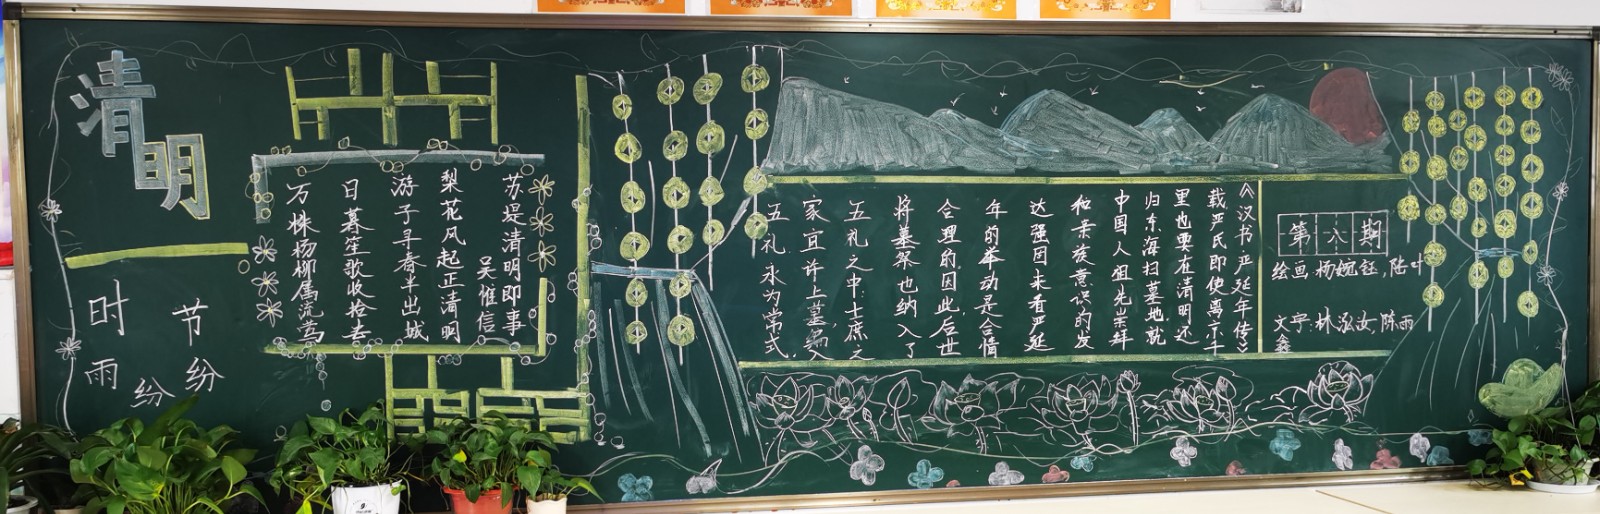 清明
时节
雨纷纷
苏堤清明即事
吴惟信
梨花风起正清明
游子寻春半出城
日暮笙歌收拾去
万株杨柳属流莺
《汉书严延年传》
载严氏即使离京千
里也要在清明还
归东海扫墓地就
中国人祖先崇拜
和亲族意识的发
达强固来看严延
年的举动是合情
合理的因此后世
将墓祭也纳入了
五礼之中:士庶之
家宜许上墓,编入
五礼永为常式.
第六期
绘画:杨婉钰,陆叶
文字:林泓汝,陈雨
鑫